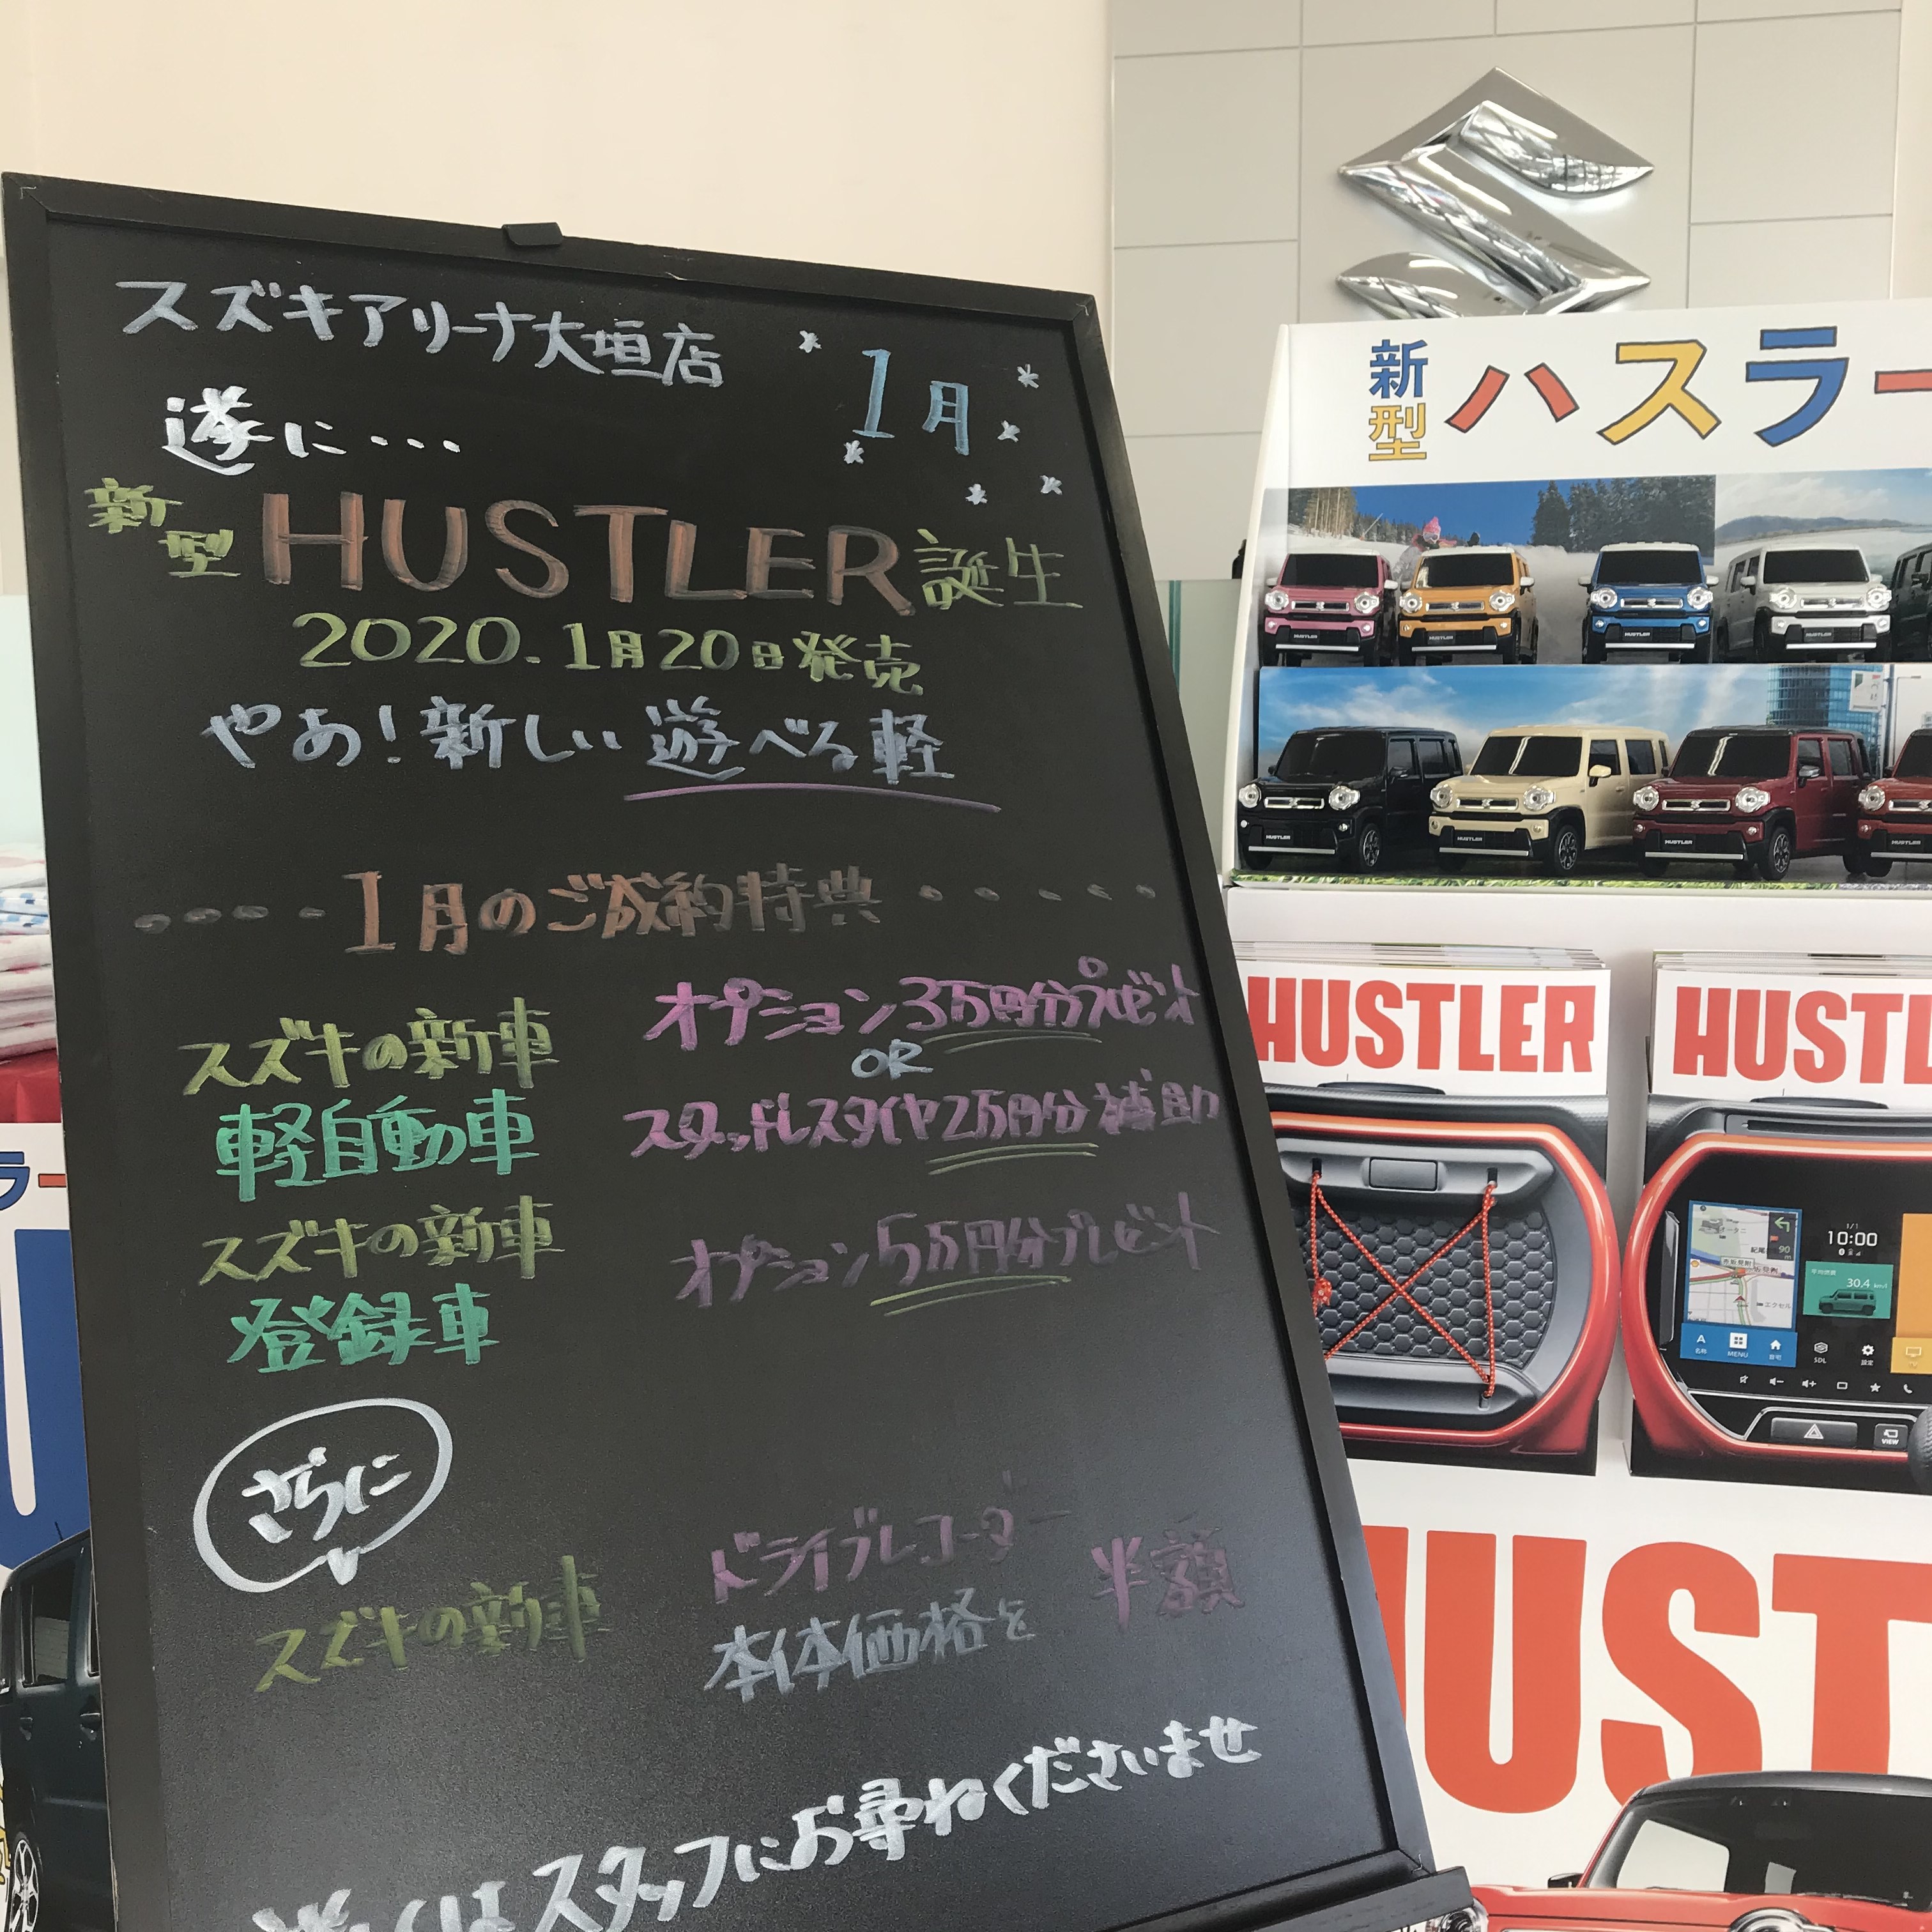 スズキアリーナ大垣店
1月
遂に・・・
新型 HUSTLER 誕生
2020.1月20日発売
やあ!新しい遊べる軽
1月のご成約特典
スズキの新車
軽自動車
オプション3万円分プレゼント
OR
スタッドレスタイヤ2万円分補助
スズキの新車
登録車
オプション5万円分プレゼント
さらに
スズキの新車
ドライブレコーダー
本体価格を 半額
詳しくはスタッフにお尋ねくださいませ
新型 ハスラー
HUSTLER
HUSTLER
HUSTLER
HUSTLER
HUSTLER
HUSTLER
HUSTLER
HUSTL
10:00
30.4
MENU
SDL
設定
VIEW
UST